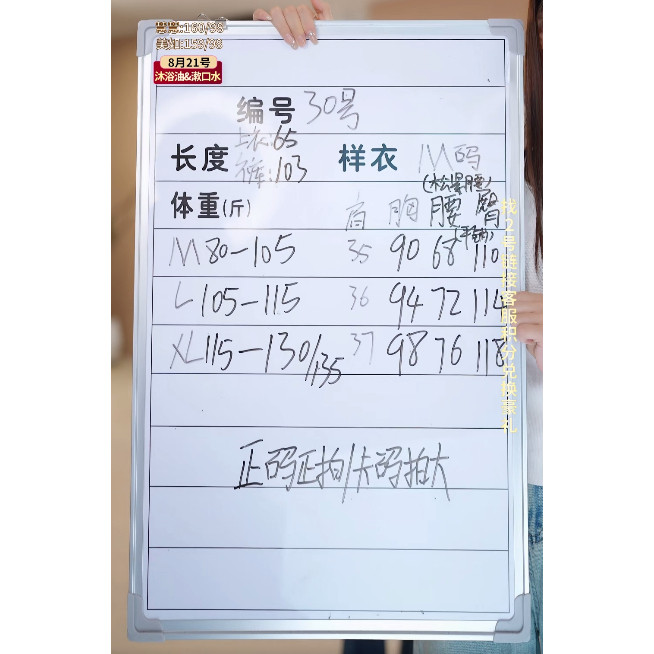 8月21号
沐浴油&漱口水
编号 30号
上衣:65
长度 裤:103 样衣 M码
(松紧腰)
体重(斤) 肩 胸 腰 臀
(平铺)
M 80-105 35 90 68 110
L 105-115 36 94 72 114
XL 115-130/135 37 98 76 118
正码正拍/卡码拍大
找2号链接客服积分兑换豪礼